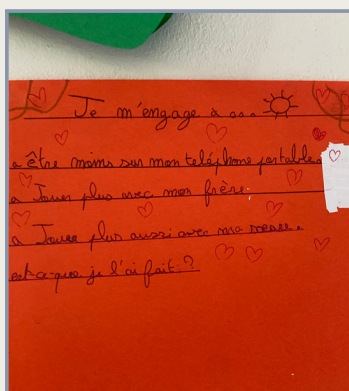 Je m'engage à ...
a être moins sur mon teléphone portable.
a Jouer plus avec mon frère.
a Jouer plus aussi avec ma soeur.
est-ce-que je l'ai fait ?